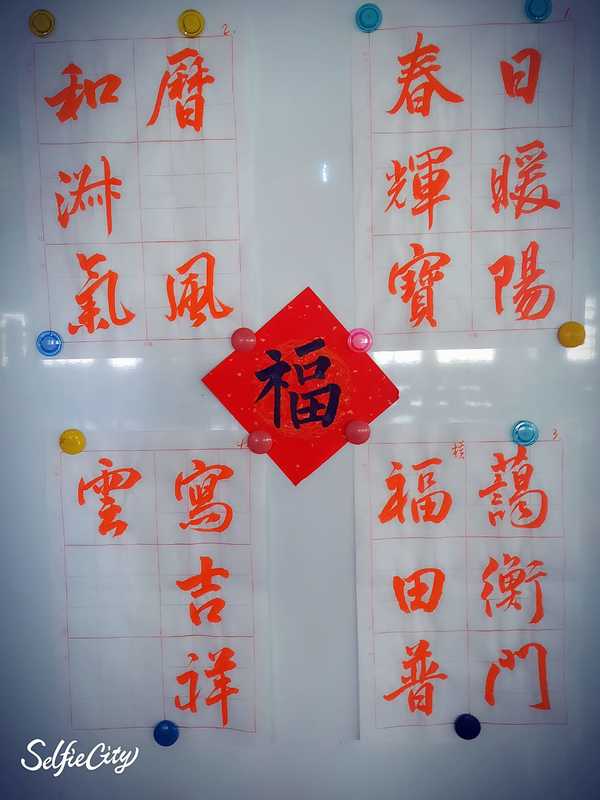 1.
日暖陽
春輝寶
2.
曆
風
和淑氣
福
3.
藹衡門
橫
福田普
4.
寫吉祥
雲
SelfieCity